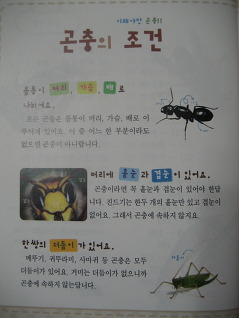 이래야만 곤충!!
곤충의 조건
몸통이 머리, 가슴, 배로
나뉘어요.
모든 곤충은 몸통이 머리, 가슴, 배로 이
루어져 있어요. 이 중 어느 한 부분이라도
없으면 곤충이 아니랍니다.
머리에 홑눈과 겹눈이 있어요.
곤충이라면 꼭 홑눈과 겹눈이 있어야 한답
니다. 진드기는 한두 개의 홑눈만 있고 겹눈이
없어요. 그래서 곤충에 속하지 않지요.
한 쌍의 더듬이가 있어요.
메뚜기, 귀뚜라미, 사마귀 등 곤충은 모두
더듬이가 있어요. 거미는 더듬이가 없으니까
곤충에 속하지 않는답니다.
더듬이